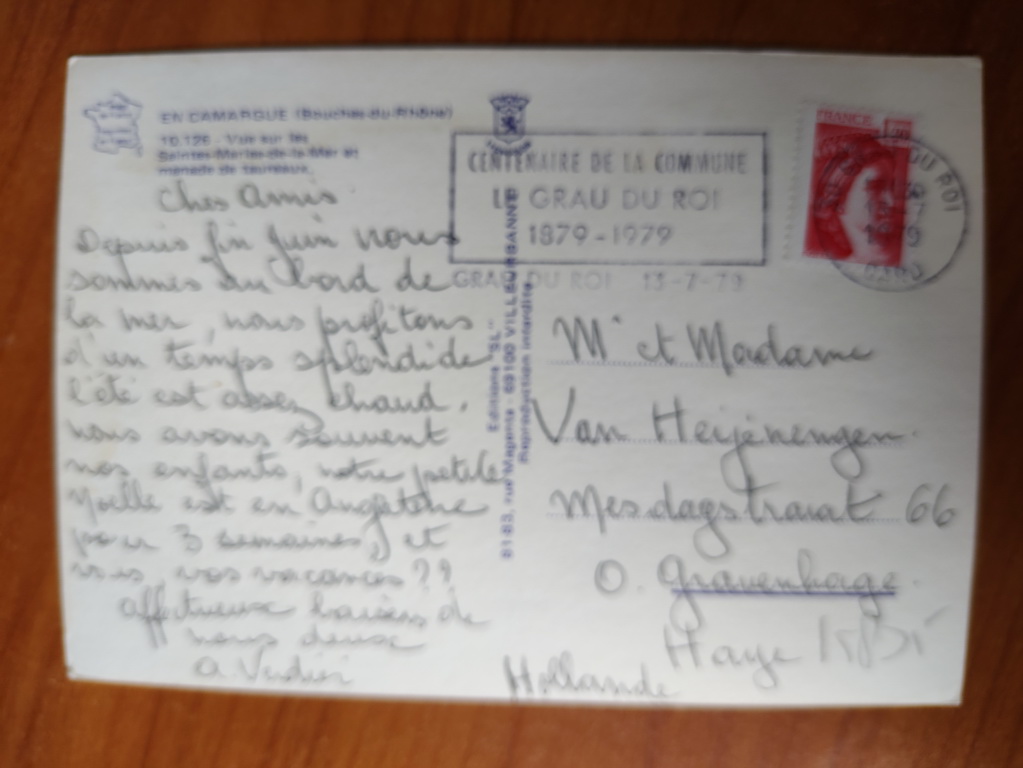 EN CAMARGUE (Bouches-du-Rhône)
10.126 - Vue sur les
Saintes-Maries-de-la-Mer et
manade de taureaux.
Chers Amis
Depuis fin Juin nous
sommes au bord de
la mer, nous profitons
d'un temps splendide
l'été est assez chaud.
nous avons souvent
nos enfants, notre petite
est en Angleterre
pour 3 semaines, et
vous, vos vacances ??
affectueux baisers de
nous deux
a. Verdier
Editions "SL"
61-63, rue Magenta - 69100 VILLEURBANNE
Reproduction interdite
CENTENAIRE DE LA COMMUNE
LE GRAU DU ROI
1879-1979
GRAU DU ROI 13-7-79
FRANCE 1,20
DU ROI
1979
Mr et Madame
Van Heijeningen.
Mesdagstraat 66
Gravenhage.
Haye
Hollande